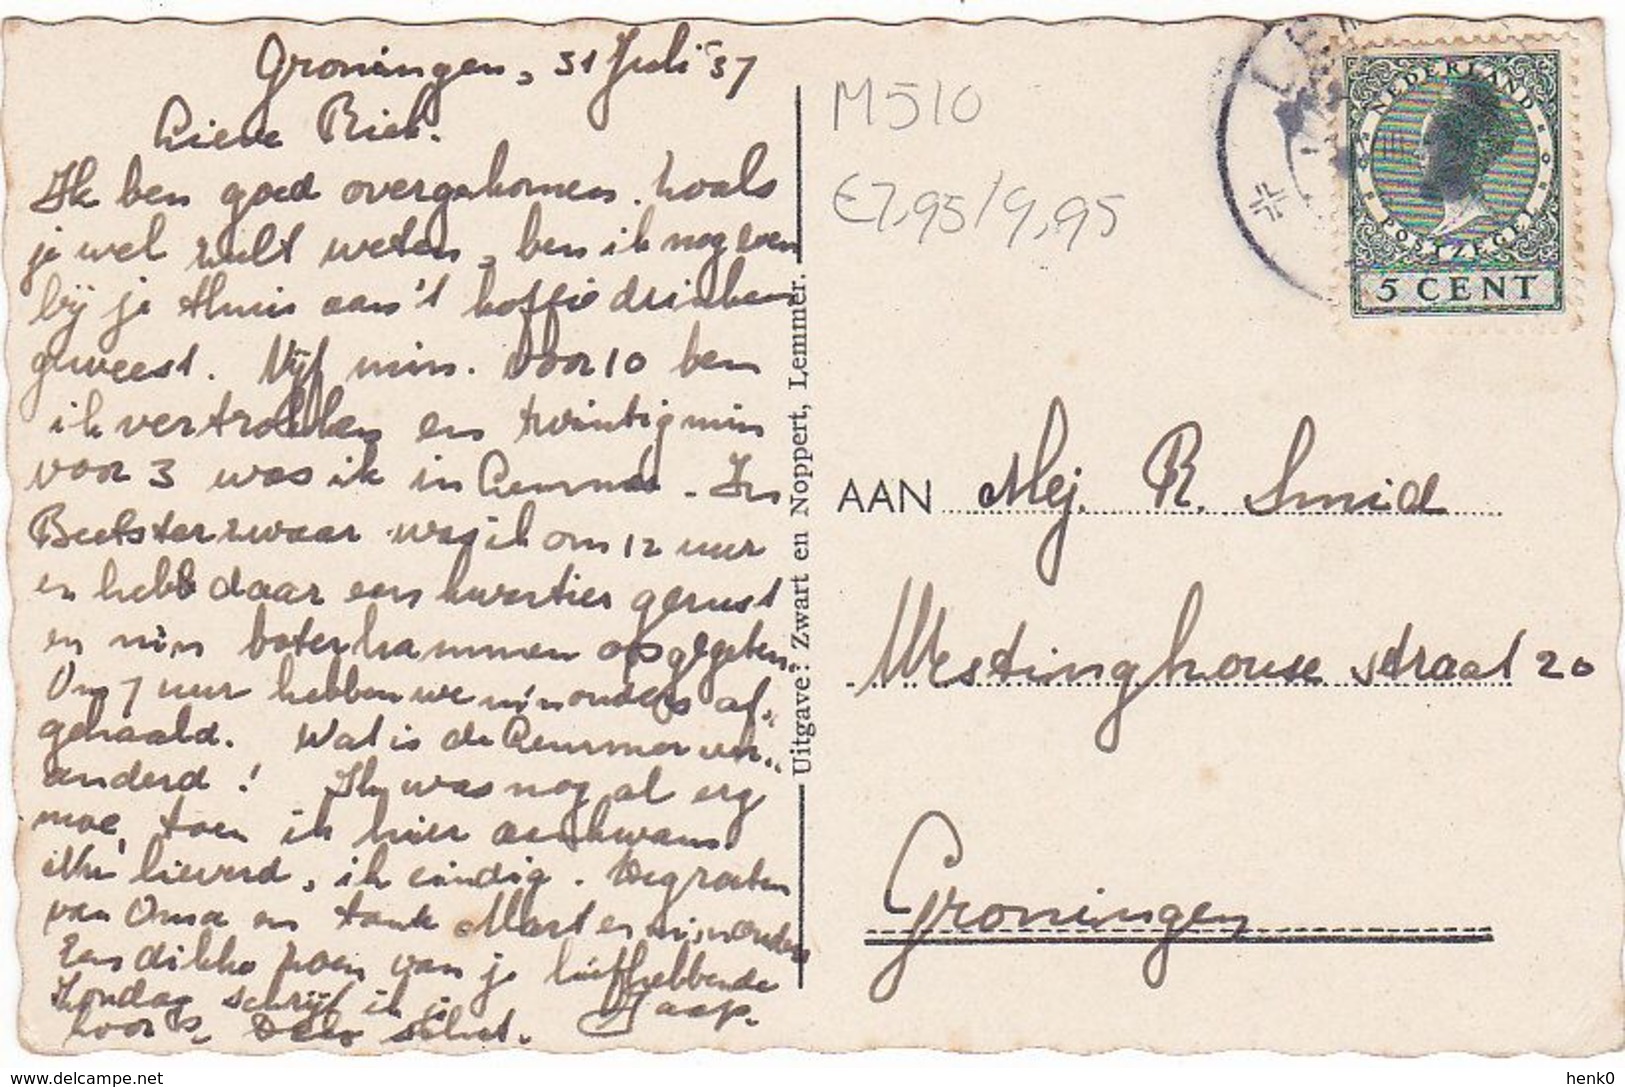 Groningen, 31 Juli '37
Lieve Riek.
Ik ben goed overgekomen. Zoals
je wel zult weten, ben ik nog even
bij je thuis aan 't koffie drinken
geweest. Vijf min. voor 10 ben
ik vertrokken en twintig min
voor 3 was ik in Lemmer. In
Beetsterzwaag was ik om 12 uur
en heb daar een kwartier gerust
en m'n boterhammen opgegeten.
Om 7 uur hebben we m'n ouders af-
gehaald. Wat is de Lemmer ver-
anderd! Ik was nog al erg
moe, toen ik hier aankwam.
Nu lieverd, ik eindig. De groeten
van Oma en tante Mart en m'n ouders
Een dikke zoen van je liefhebbende
Zondag schrijf ik je Jaap.
hoor
Uitgave: Zwart en Noppert, Lemmer.
M510
€7,95/9,95
NEDERLAND
POSTZEGEL
5 CENT
AAN Mej. R. Smid
Westinghouse straat 20
Groningen
www.delcampe.net
henk0